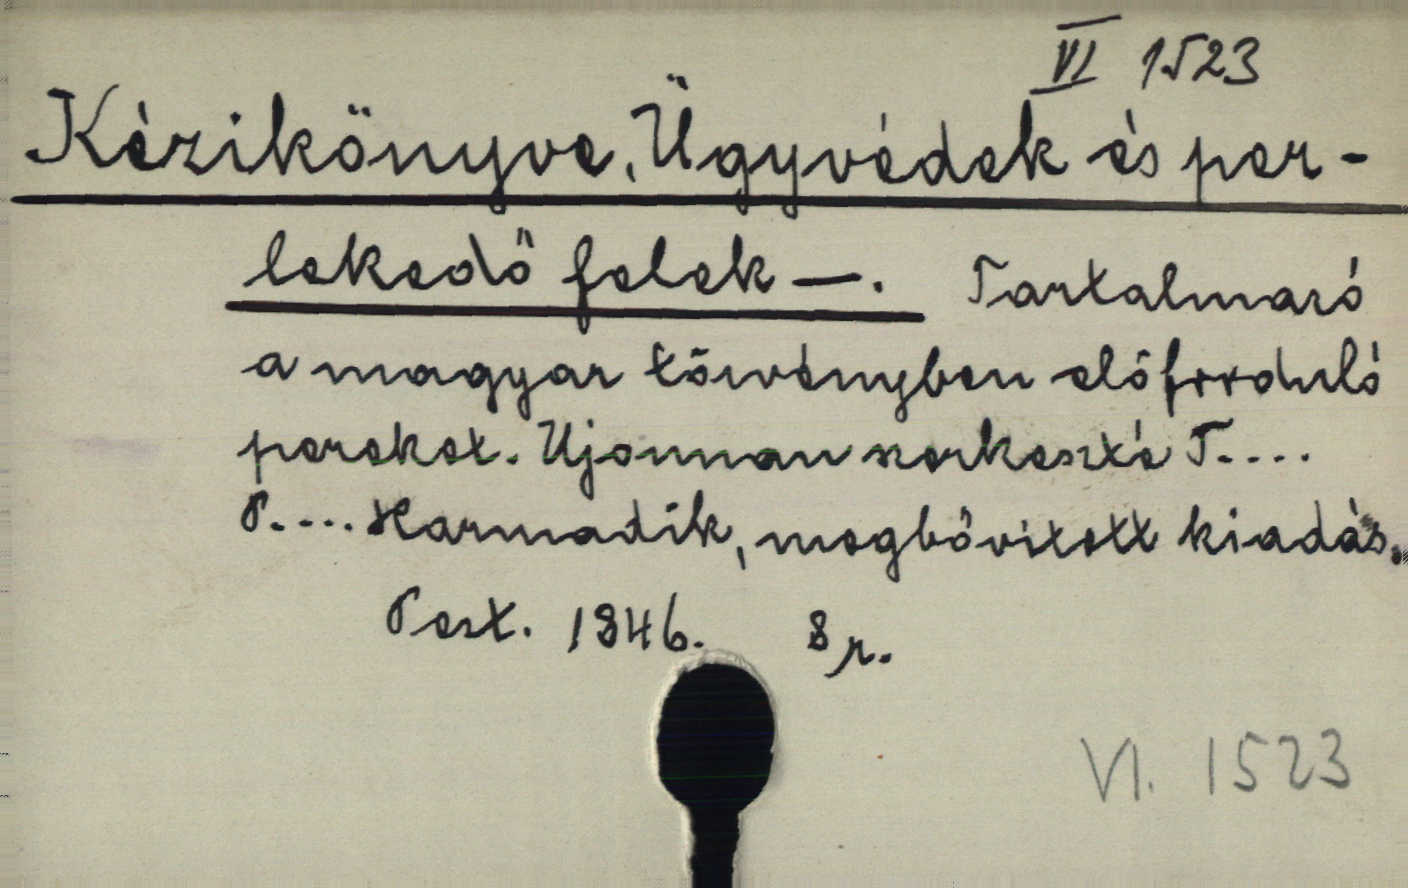 VI 1523
Kézikönyve, Ügyvédek és per-
lekedő felek —. Tartalmazó
a magyar törvényben előforduló
pereket. Ujonnan szerkeszté T....
P.... Harmadik, megbővitett kiadás.
Pest. 1846. 8 r.
VI. 1523